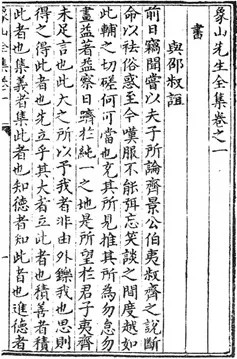 象山先生全集卷之一
書
與邵叔誼
前日竊聞嘗以夫子所論齊景公伯夷叔齊之說斷
命以祛俗惑至今嘆服不能弭忘笑談之間度越如
此輔之切磋何可當也充其所見推其所爲勿怠勿
畫益著益察日躋於純一之地是所望於君子夷齊
未足言也此天之所以予我者非由外鑠我也思則
得之得此者也先立乎其大者立此者也積善者積
此者也集義者集此者也知德者知此者也進德者
象山全集卷一